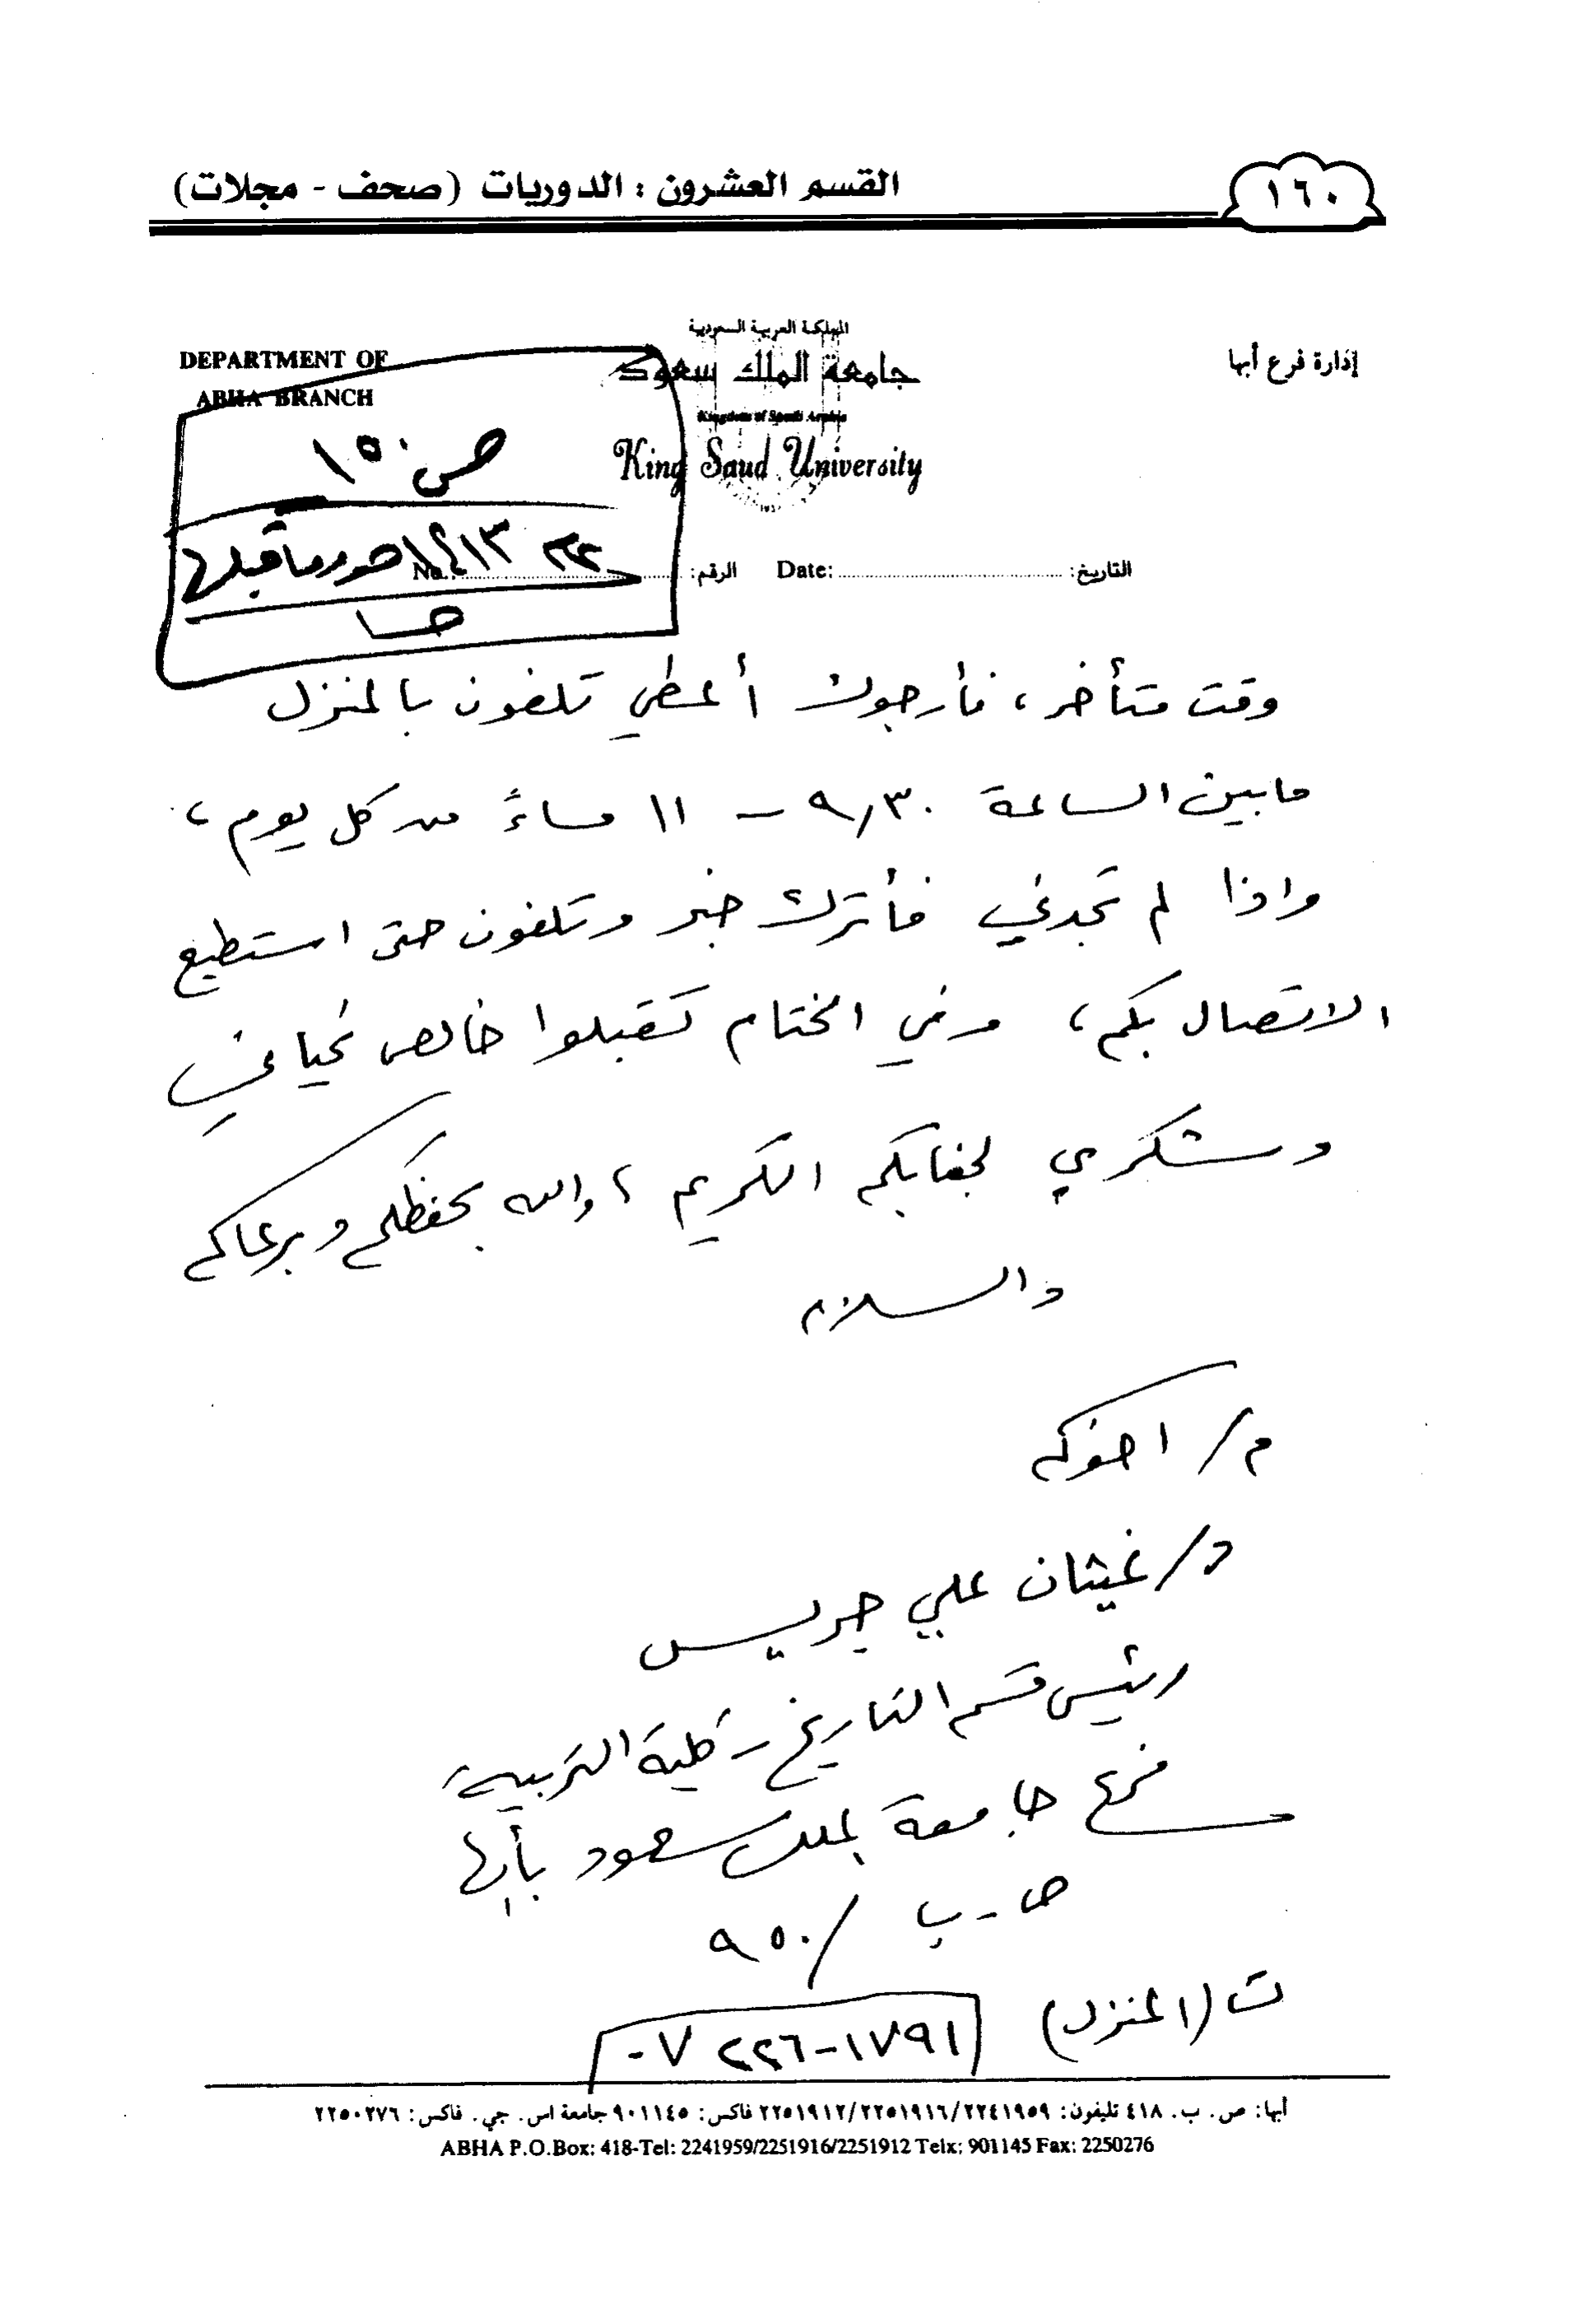 ١٦٠
القسم العشرون : الدوريات (صحف - مجلات)
إدارة فرع أبها
المملكة العربية السعودية
جامعة الملك سعود
Kingdom of Saudi Arabia
King Saud University
DEPARTMENT OF
ABHA BRANCH
ص ١٥٠
وما قبلها
التاريخ: Date: الرقم: No.:
وقت متأخر، فأرجوك أعطي تلفون بالمنزل
مابين الساعة ٩,٣٠ – ١١ مساءً من كل يوم،
واذا لم تجدني فأترك خبر وتلفون حتى استطيع
الاتصال بكم، وفي الختام تقبلوا خالص تحياتي
وشكري لجنابكم الكريم، والله يحفظكم ويرعاكم
والسلام
م/ اخوكم
د/ غيثان علي جريس
رئيس قسم التاريخ – كلية التربية
فرع جامعة الملك سعود بأبها
ص - ب / ٩٥٠
ت (المنزل) ٠٧ ٢٢٦-١٧٩١
أبها: ص. ب. ٤١٨ تليفون: ٢٢٥١٩١٢/٢٢٥١٩١٦/٢٢٤١٩٥٩ فاكس: ٩٠١١٤٥ جامعة اس. جي. فاكس: ٢٢٥٠٢٧٦
ABHA P.O.Box: 418-Tel: 2241959/2251916/2251912 Telx: 901145 Fax: 2250276